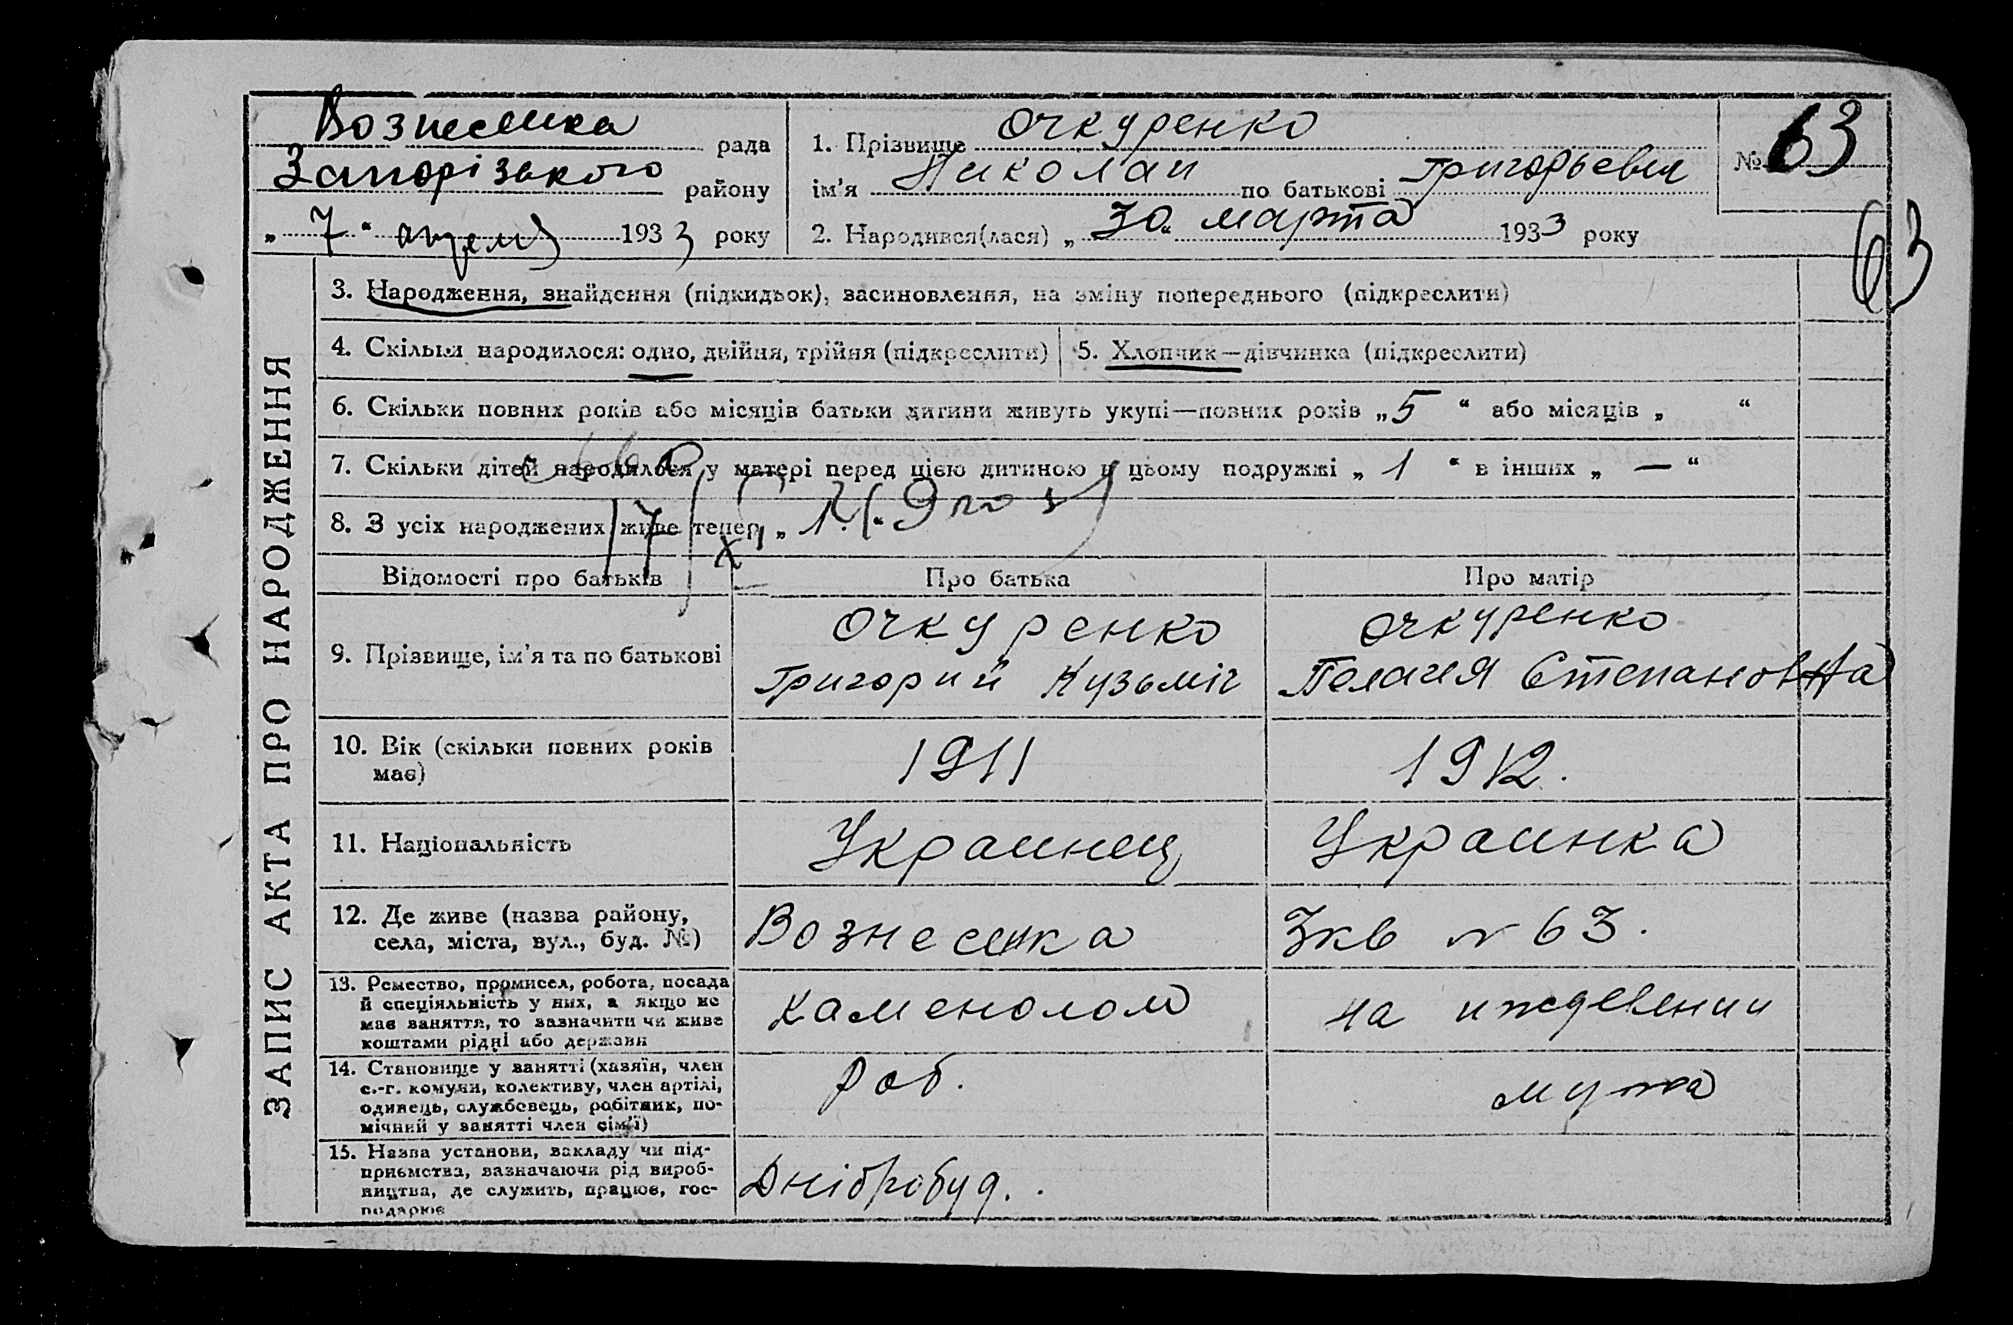 Вознесенка рада
Запорізького району
„ 7 “ апреля 1933 року
1. Прізвище Очкуренко
ім'я Николай по батькові Григорьевич
2. Народився(лася) „ 30 “ марта 1933 року
№ 63
63
ЗАПИС АКТА ПРО НАРОДЖЕННЯ
3. Народження, знайдення (підкидьок), засиновлення, на зміну попереднього (підкреслити)
4. Скільки народилося: одно, двійня, трійня (підкреслити)
5. Хлопчик—дівчинка (підкреслити)
6. Скільки повних років або місяців батьки дитини живуть укупі—повних років „ 5 “ або місяців „ “
7. Скільки дітей народилося у матері перед цією дитиною в цьому подружжі „ 1 “ в інших „ — “
8. З усіх народжених живе тепер „ 1 “
Відомості про батьків
Про батька
Про матір
9. Прізвище, ім'я та по батькові
Очкуренко
Григорий Кузьміч
Очкуренко
Пелагия Степановна
10. Вік (скільки повних років
має)
1911
1912.
11. Національність
Украинец
Украинка
12. Де живе (назва району,
села, міста, вул., буд. №)
Вознесенка
Зкв № 63.
13. Ремество, промисел, робота, посада
й спеціяльність у них, а якщо не
має заняття, то зазначити чи живе
коштами рідні або держави
Каменолом
на иждевении
14. Становище у занятті (хазяїн, член
с.-г. комуни, колективу, член артілі,
одинець, службовець, робітник, по-
мічний у занятті член сім'ї)
Роб.
мужа
15. Назва установи, закладу чи під-
приємства, зазначаючи рід вироб-
ництва, де служить, працює, гос-
подарює
Дніпробуд.